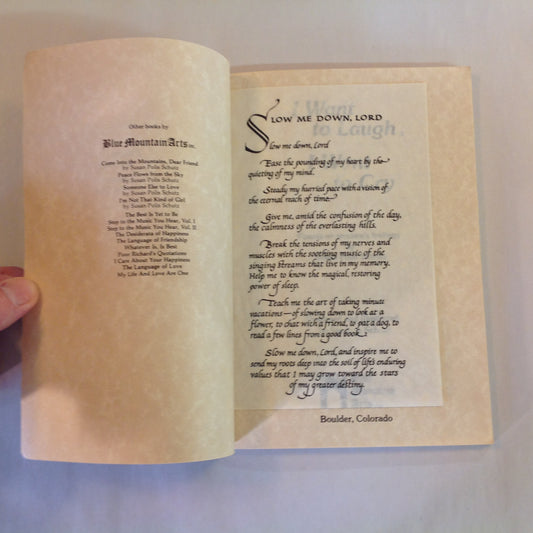 Other books by
Blue Mountain Arts inc.
Come Into the Mountains, Dear Friend
by Susan Polis Schutz
Peace Flows from the Sky
by Susan Polis Schutz
Someone Else to Love
by Susan Polis Schutz
I'm Not That Kind of Girl
by Susan Polis Schutz
The Best Is Yet to Be
Step to the Music You Hear, Vol. I
Step to the Music You Hear, Vol. II
The Desiderata of Happiness
The Language of Friendship
Whatever Is, Is Best
Poor Richard's Quotations
I Care About Your Happiness
The Language of Love
My Life And Love Are One
I Want
to Laugh,
SLOW ME DOWN, LORD
Slow me down, Lord
Ease the pounding of my heart by the
quieting of my mind.
Steady my hurried pace with a vision of
the eternal reach of time.
Give me, amid the confusion of the day,
the calmness of the everlasting hills.
Break the tensions of my nerves and
muscles with the soothing music of the
singing streams that live in my memory.
Help me to know the magical, restoring
power of sleep.
Teach me the art of taking minute
vacations—of slowing down to look at a
flower, to chat with a friend, to pat a dog, to
read a few lines from a good book.
Slow me down, Lord, and inspire me to
send my roots deep into the soil of life's enduring
values that I may grow toward the stars
of my greater destiny.
Boulder, Colorado